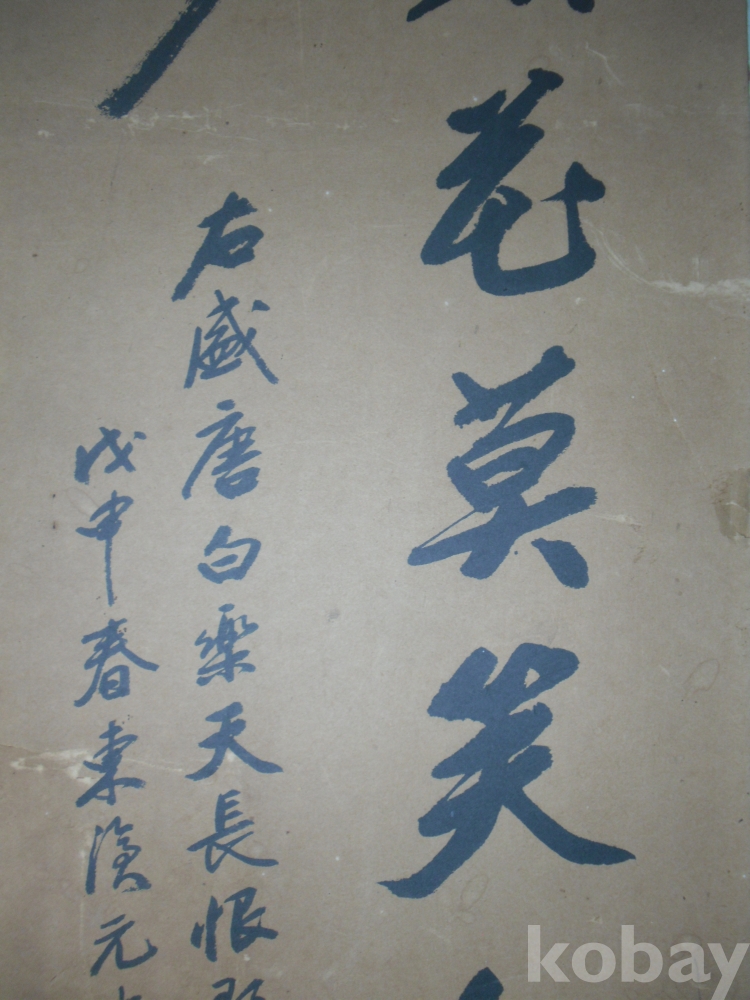 花莫笑
右盛唐白樂天長恨歌
戊申春東濱元
kobay